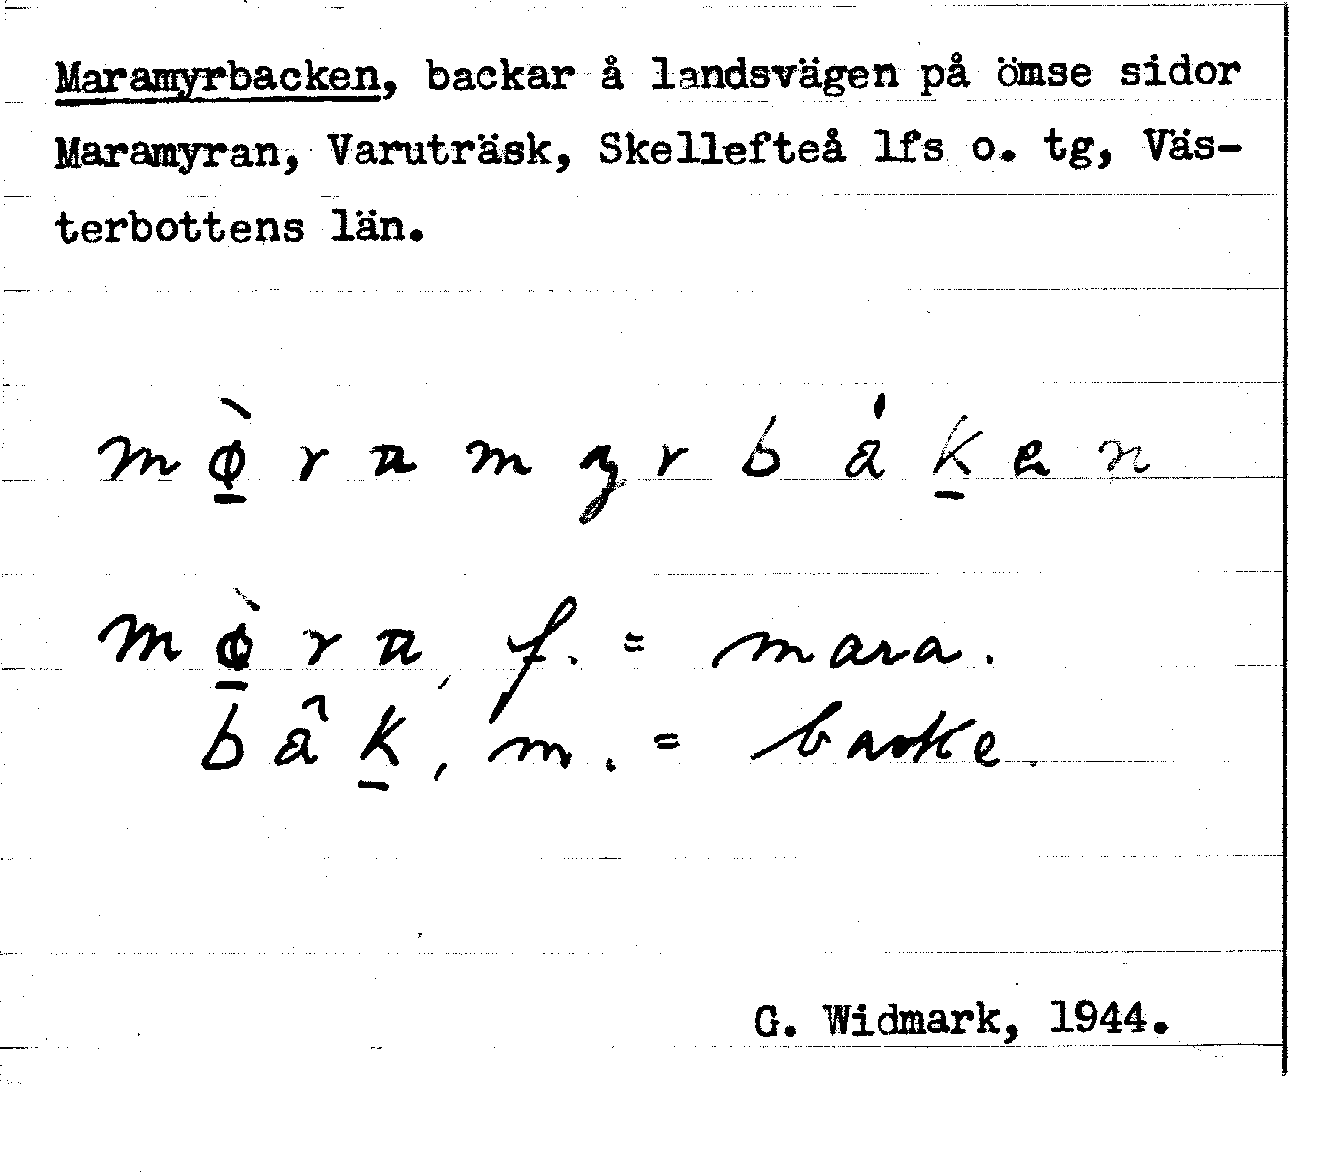 Maramyrbacken, backar å landsvägen på ömse sidor
Maramyran, Varuträsk, Skellefteå lfs o. tg, Väs-
terbottens län.
mø̱̀ramyrbáḵen
mø̱̀ra, f. = mara.
bâḵ, m. = backe.
G. Widmark, 1944.